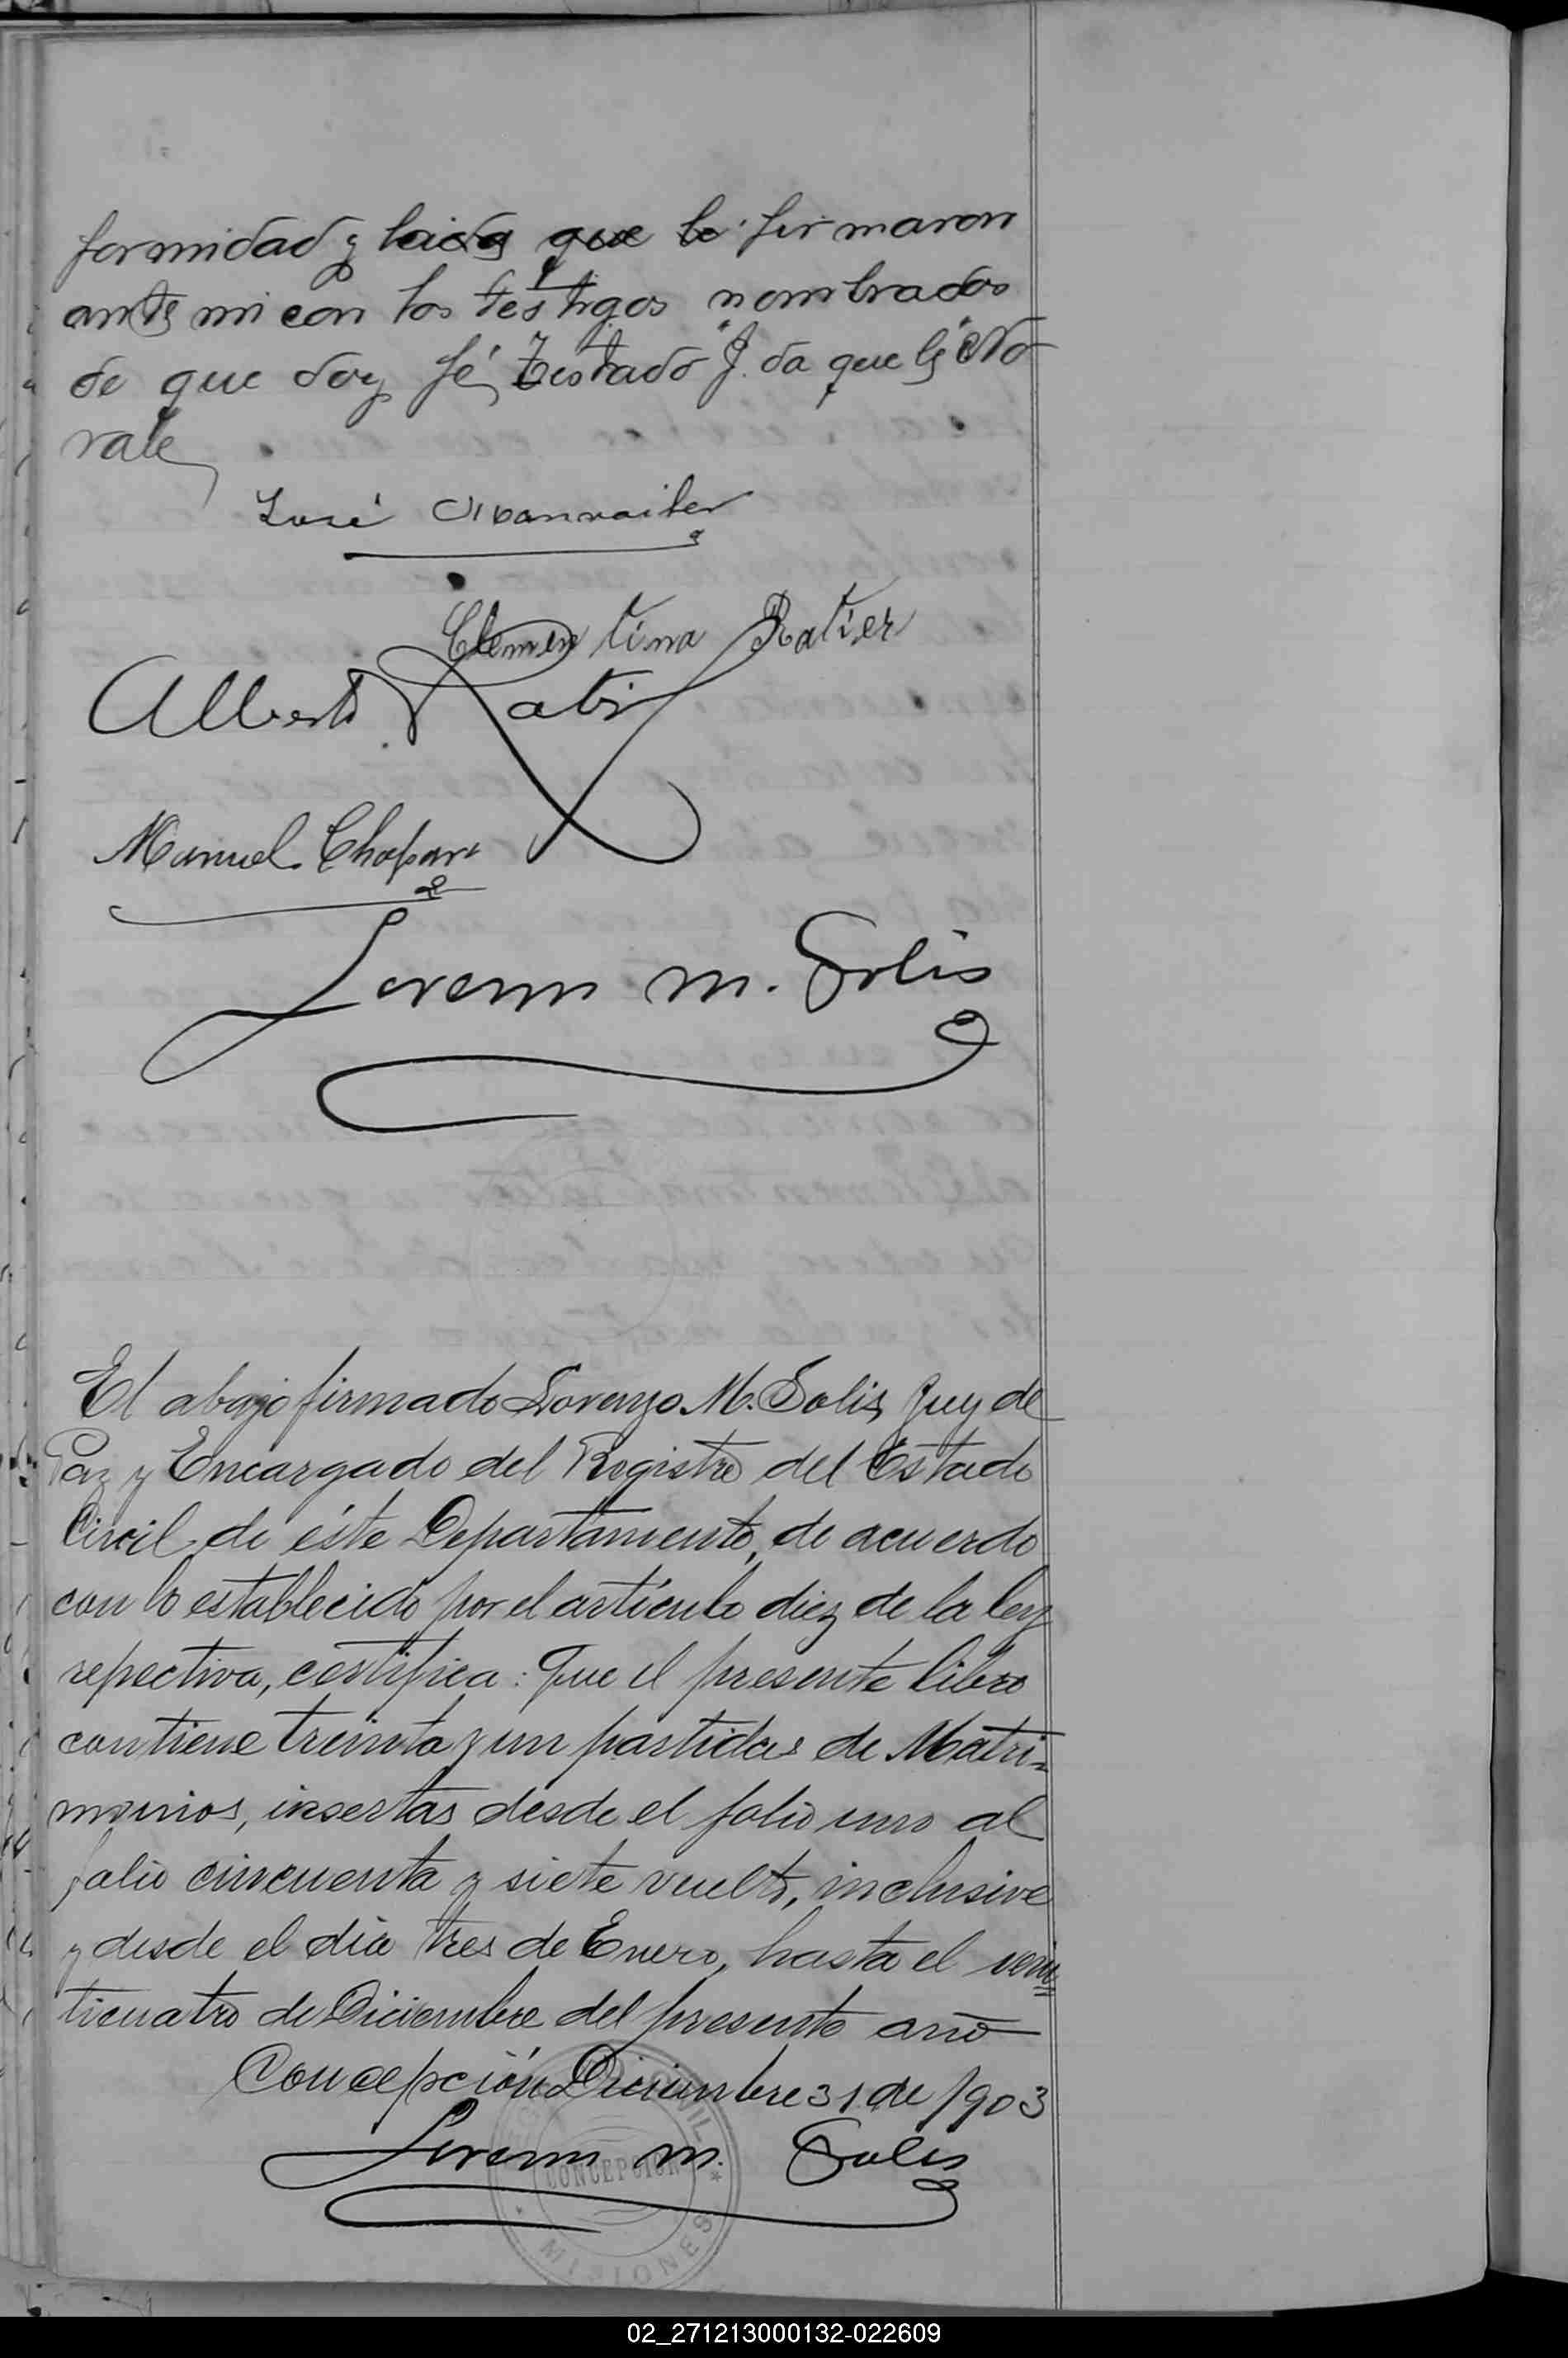 formidad y leida que le firmaron
ante mi con los testigos nombrados
de que doy fé, Testado "J. da que le" No
vale
José
Clementina Ratier
Alberto Ratier
Manuel Chapar
Lorenzo M. Solis
El abajo firmado Lorenzo M. Solis, Juez de
Paz y Encargado del Registro del Estado
Civil de éste Departamento, de acuerdo
con lo establecido por el artículo diez de la ley
repectiva, certifica: Que el presente libro
contiene treinta y un partidas de Matri-
monios, insertas desde el folio uno al
folio cincuenta y siete vuelto, inclusive
y desde el dia tres de Enero, hasta el vein
ticuatro de Diciembre del presente año
Concepción Diciembre 31 de 1903
Lorenzo M. Solis
CONCEPCION
MISIONES
02_271213000132-022609